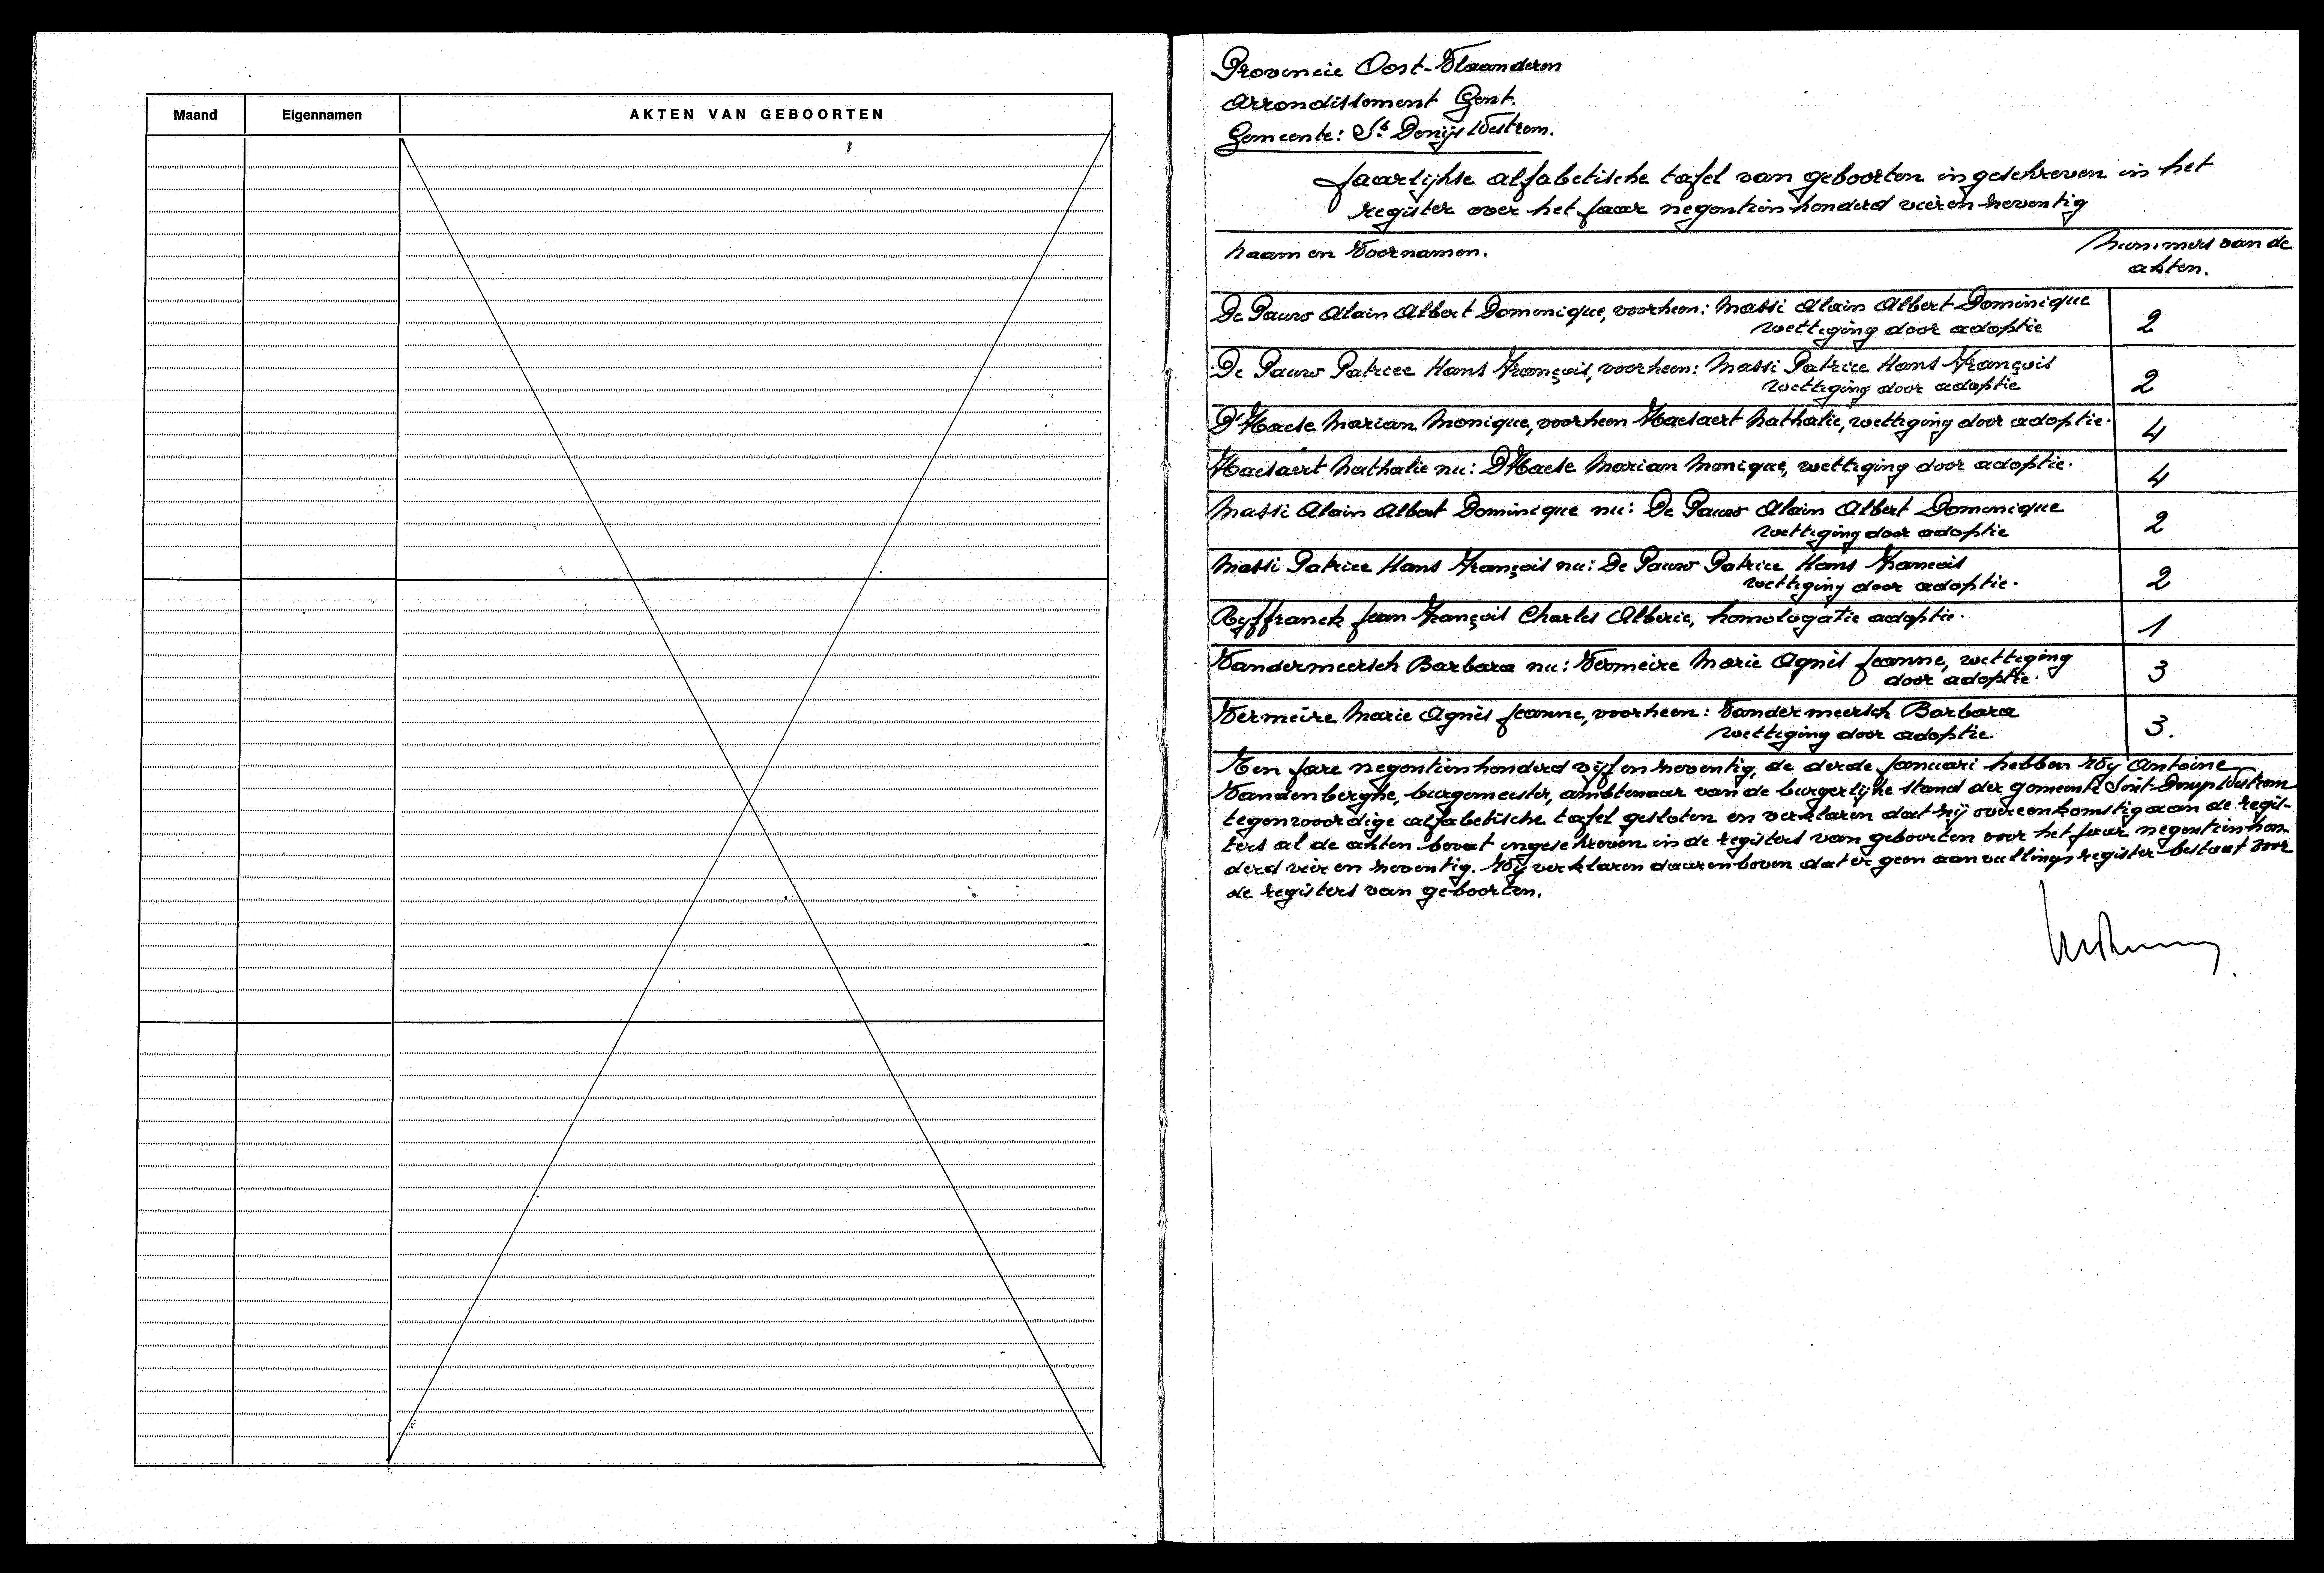 Maand Eigennamen AKTEN VAN GEBOORTEN
Provincie Oost-Vlaanderen
Arrondissement Gent.
Gemeente: St Denijs Westrem.
Jaarlijkse alfabetische tafel van geboorten ingeschreven in het
register over het jaar negentien honderd vier en negentig
Naam en Voornamen. Nummers van de
akten.
De Pauw Alain Albert Dominique, voorheen: Massi Alain Albert Dominique
wettiging door adoptie 2
De Pauw Patrice Hans François, voorheen: Massi Patrice Hans François
wettiging door adoptie 2
D'Haese Marian Monique, voorheen Haesaert Nathalie, wettiging door adoptie. 4
Haesaert Nathalie nu: D'Haese Marian Monique, wettiging door adoptie. 4
Massi Alain Albert Dominique nu: De Pauw Alain Albert Dominique
wettiging door adoptie 2
Massi Patrice Hans François nu: De Pauw Patrice Hans Francois
wettiging door adoptie. 2
Ryffranck Jean François Charles Alberic, homologatie adoptie. 1
Vandermeersch Barbara nu: Vermeire Marie Agnès Jeanne, wettiging
door adoptie. 3
Vermeire Marie Agnès Jeanne, voorheen: Vandermeersch Barbara
wettiging door adoptie. 3.
Ten jare negentienhonderd vijf en negentig, de derde januari hebben Wij Antoine
Vandenberghe, burgemeester, ambtenaar van de burgerlijke stand der gemeente Sint-Denijs Westrem
tegenwoordige alfabetische tafel gesloten en verklaren dat hij overeenkomstig aan de regis-
ters al de akten bevat ingeschreven in de registers van geboorten voor het jaar negentienhon-
derd vier en negentig. Wij verklaren daarenboven dat er geen aanvullingsregister bestaat voor
de registers van geboorten.